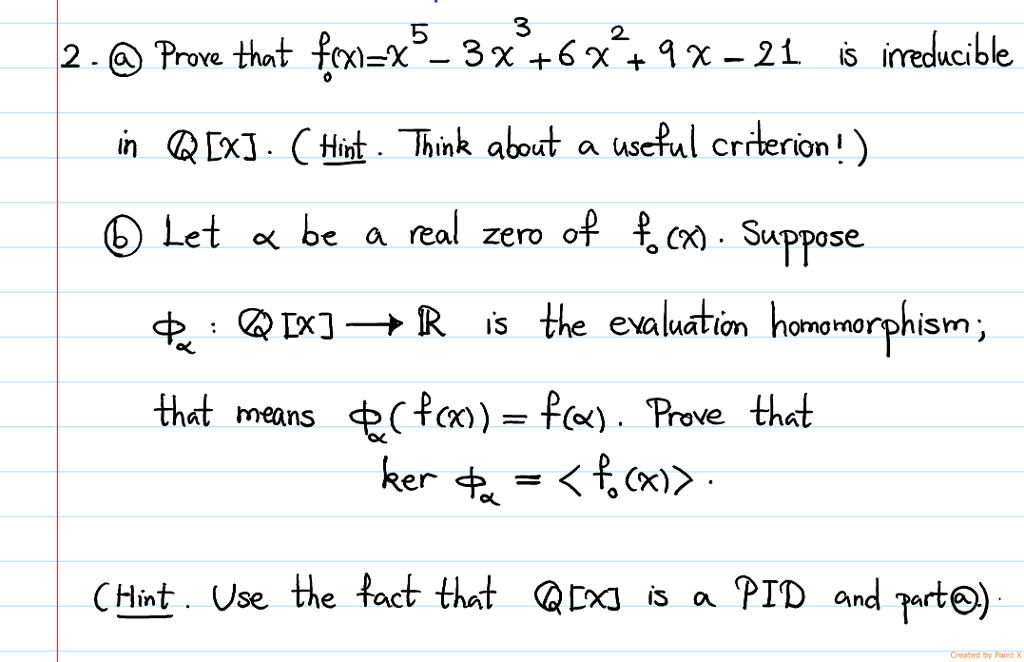 2. ⓐ Prove that f₀(x)=x⁵ - 3x³ + 6x² + 9x - 21 is irreducible
in ℚ[x]. (Hint. Think about a useful criterion!)
ⓑ Let α be a real zero of f₀(x). Suppose
ϕ_α : ℚ[x] → ℝ is the evaluation homomorphism;
that means ϕ_α(f(x)) = f(α). Prove that
ker ϕ_α = <f₀(x)>.
(Hint. Use the fact that ℚ[x] is a PID and part ⓐ.)
Created by Paint X